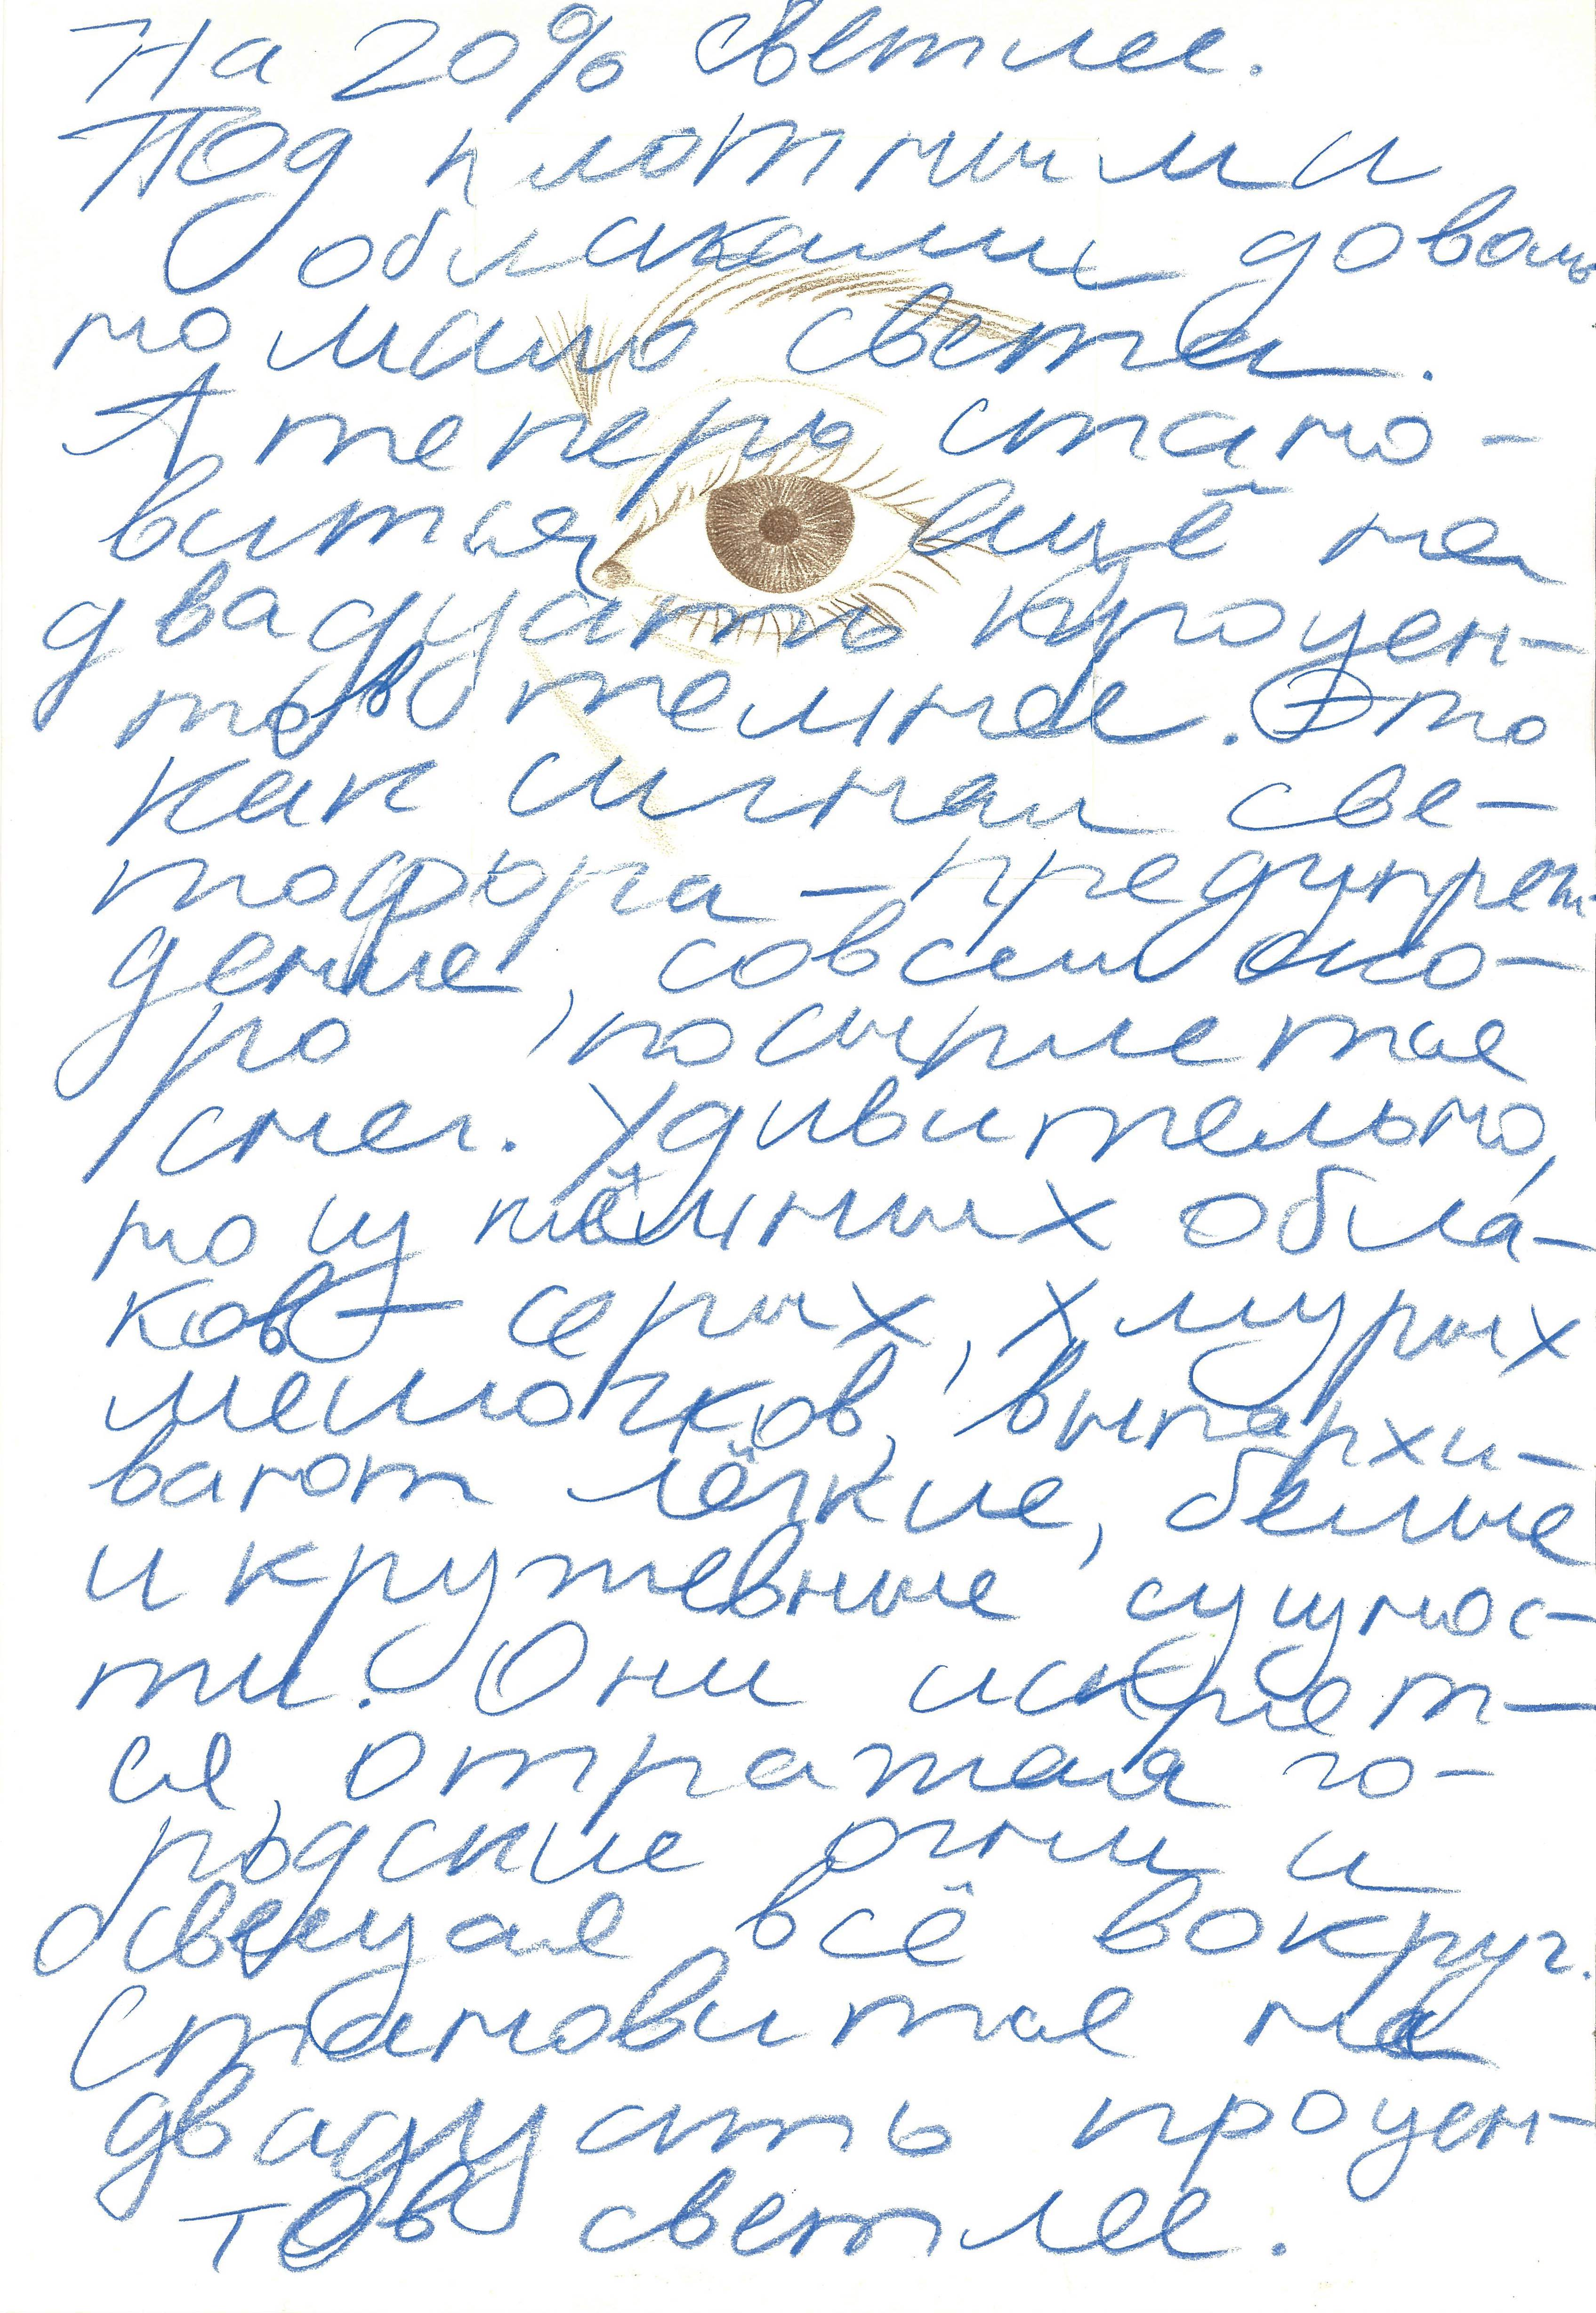 На 20% светлее.
Под плотными
облаками доволь
но мало света.
А теперь стано-
вится ещё на
двадцать процен-
тов темнее. Это
как сигнал све-
тофора - предупреж-
дение, совсем ско-
ро посыплется
снег. Удивительно,
но из тёмных обла-
ков - серых, хмурых
мешочков, выпархи-
вают лёгкие, белые
и кружевные сущнос-
ти. Они искрят-
ся, отражая го-
родские огни и
освещая всё вокруг.
Становится на
двадцать процен-
тов светлее.